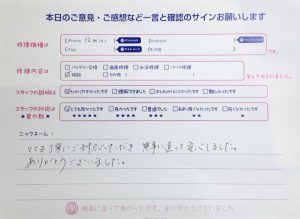 本日のご意見・ご感想など一言と確認のサインお願いします
修理機種は
iPhone 12 mini
iPad
です。
修理内容は
バッテリー交換 画面修理 水没修理 パーツ修理
相談 その他
をしてもらいました。
スタッフの説明は
わかりやすかった 理解できました 少しわかりにくかった わかりにくかった
スタッフの対応は
星の数★
とても良かった 良かった 普通でした あまり良くなかった 良くなかった
★★★★★ ★★★★ ★★★ ★★ ★
ニックネーム：
とても丁寧にご対応いただき 無事に直って安心しました。
ありがとうございました。
無事に直って良かったです。ありがとうございました